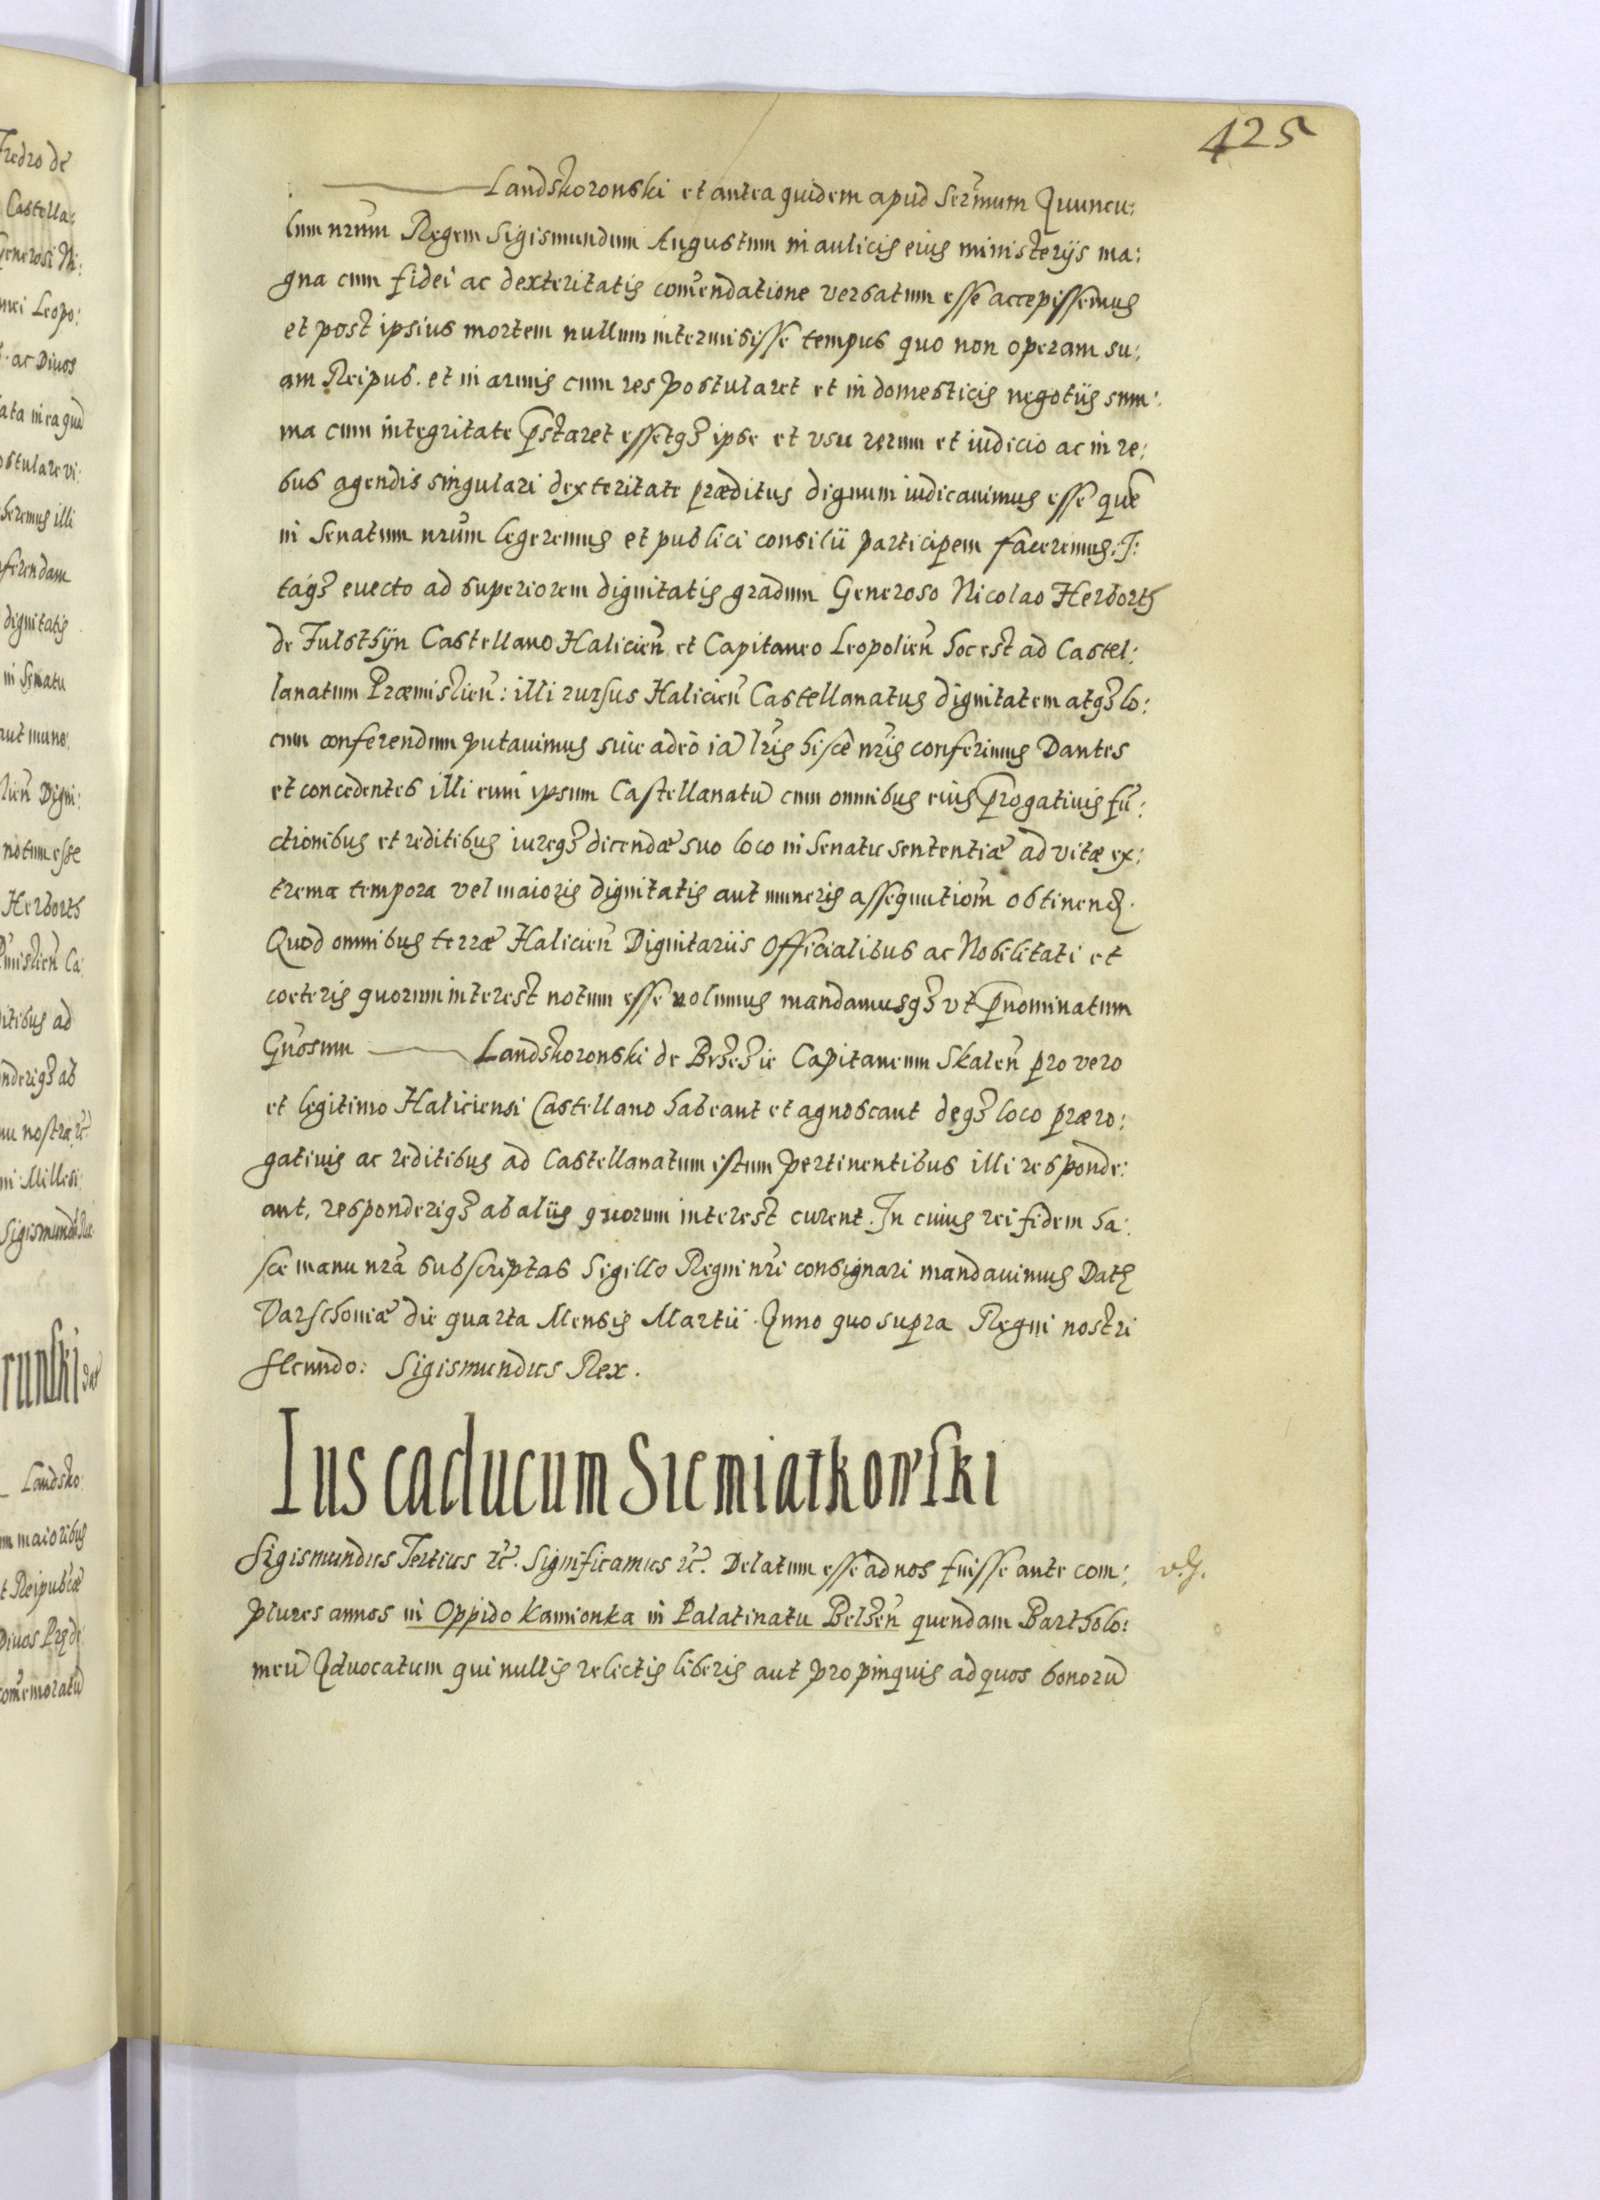 425
Landskoronski et antea quidem apud Serm̃um Auuncu:
lum nr̃um Regem Sigismundum Augustum in aulicis eius ministerijs ma:
gna cum fidei ac dexteritatis com̃endatione versatum esse accepissemus
et post ipsius mortem nullum intermisisse tempus quo non operam su:
am Reipub. et in armis cum res postularet et in domesticis negotijs sum:
ma cum integritate p̃staret essetq3 ipse et vsu rerum et iudicio ac in re:
bus agendis singulari dexteritate præditus dignum iudicauimus esse quẽ
in Senatum nrũm legeremus et publici consilii participem faceremus. I:
taq3 euecto ad superiorem dignitatis gradum Generoso Nicolao Herborth
de Fulsthijn Castellano Halicień et Capitaneo Leopolień hoc est ad Castel:
lanatum Præmislień: illi rursus Halicień Castellanatus dignitatem atq3 lo:
cum conferendum putauimus siue adeò iã lr̃is hisce nr̃is conferimus Dantes
et concedentes illi eum ipsum Castellanatũ cum omnibus eius p̃rogatiuis fũ:
ctionibus et reditibus iureq3 dicendæ suo loco in Senatu sententiæ ad vitæ ex:
trema tempora vel maioris dignitatis aut muneris assequutiom̃ obtinend̃.
Quod omnibus terræ Halicień Dignitariis Officialibus ac Nobilitati et
coeteris quorum interest notum esse volumus mandamusq3 vt p̃nominatum
Gñosum Landskoronski de Brzezie Capitaneum Skaleń pro vero
et legitimo Haliciensi Castellano habeant et agnoscant deq3 loco præro:
gatiuis ac reditibus ad Castellanatum istum pertinentibus illi responde:
ant, responderiq3 ab aliis quorum interest curent. In cuius rei fidem ha:
sce manu nrã subscriptas Sigillo Regni nr̃i consignari mandauimus Dat̃
Varschouiæ die quarta Mensis Martii Anno quo supra Regni nostri
secundo: Sigismundus Rex.
Ius caducum Siemiatkowski
Sigismundus Tertius rc̃. Significamus rc̃. Delatum esse ad nos fuisse ante com:
plures annos in Oppido Kamionka in Palatinatu Belzeń quendam Bartholo:
meũ Aduocatum qui nullis relictis liberis aut propinquis ad quos bonorũ